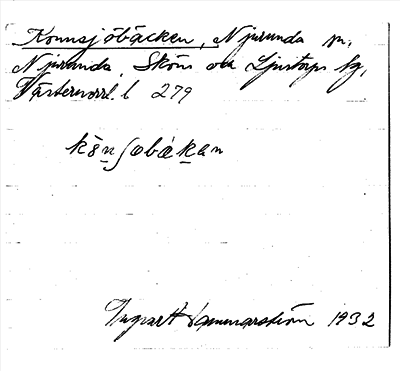 Konnsjöbäcken, Njurunda sn,
Njurunda, Sköns och Ljustorps tg,
Västernorrl. l 279
Ingvart Hammarström 1932